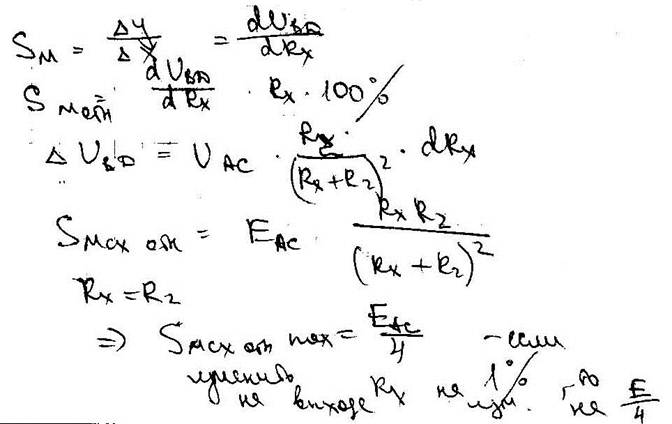 S_M = Δy/Δx = dU_BD/dR_x
S_M отн = dU_BD/dR_x · R_x · 100%
ΔU_BD = U_AC · R_2/(R_x+R_2)^2 · dR_x
S_Mсх отн = E_AC · R_x R_2/(R_x + R_2)^2
R_x = R_2
⇒ S_Mсх отн max = E_AC/4 - если
изменить R_x на 1%, то
на выходе изм. на E/4